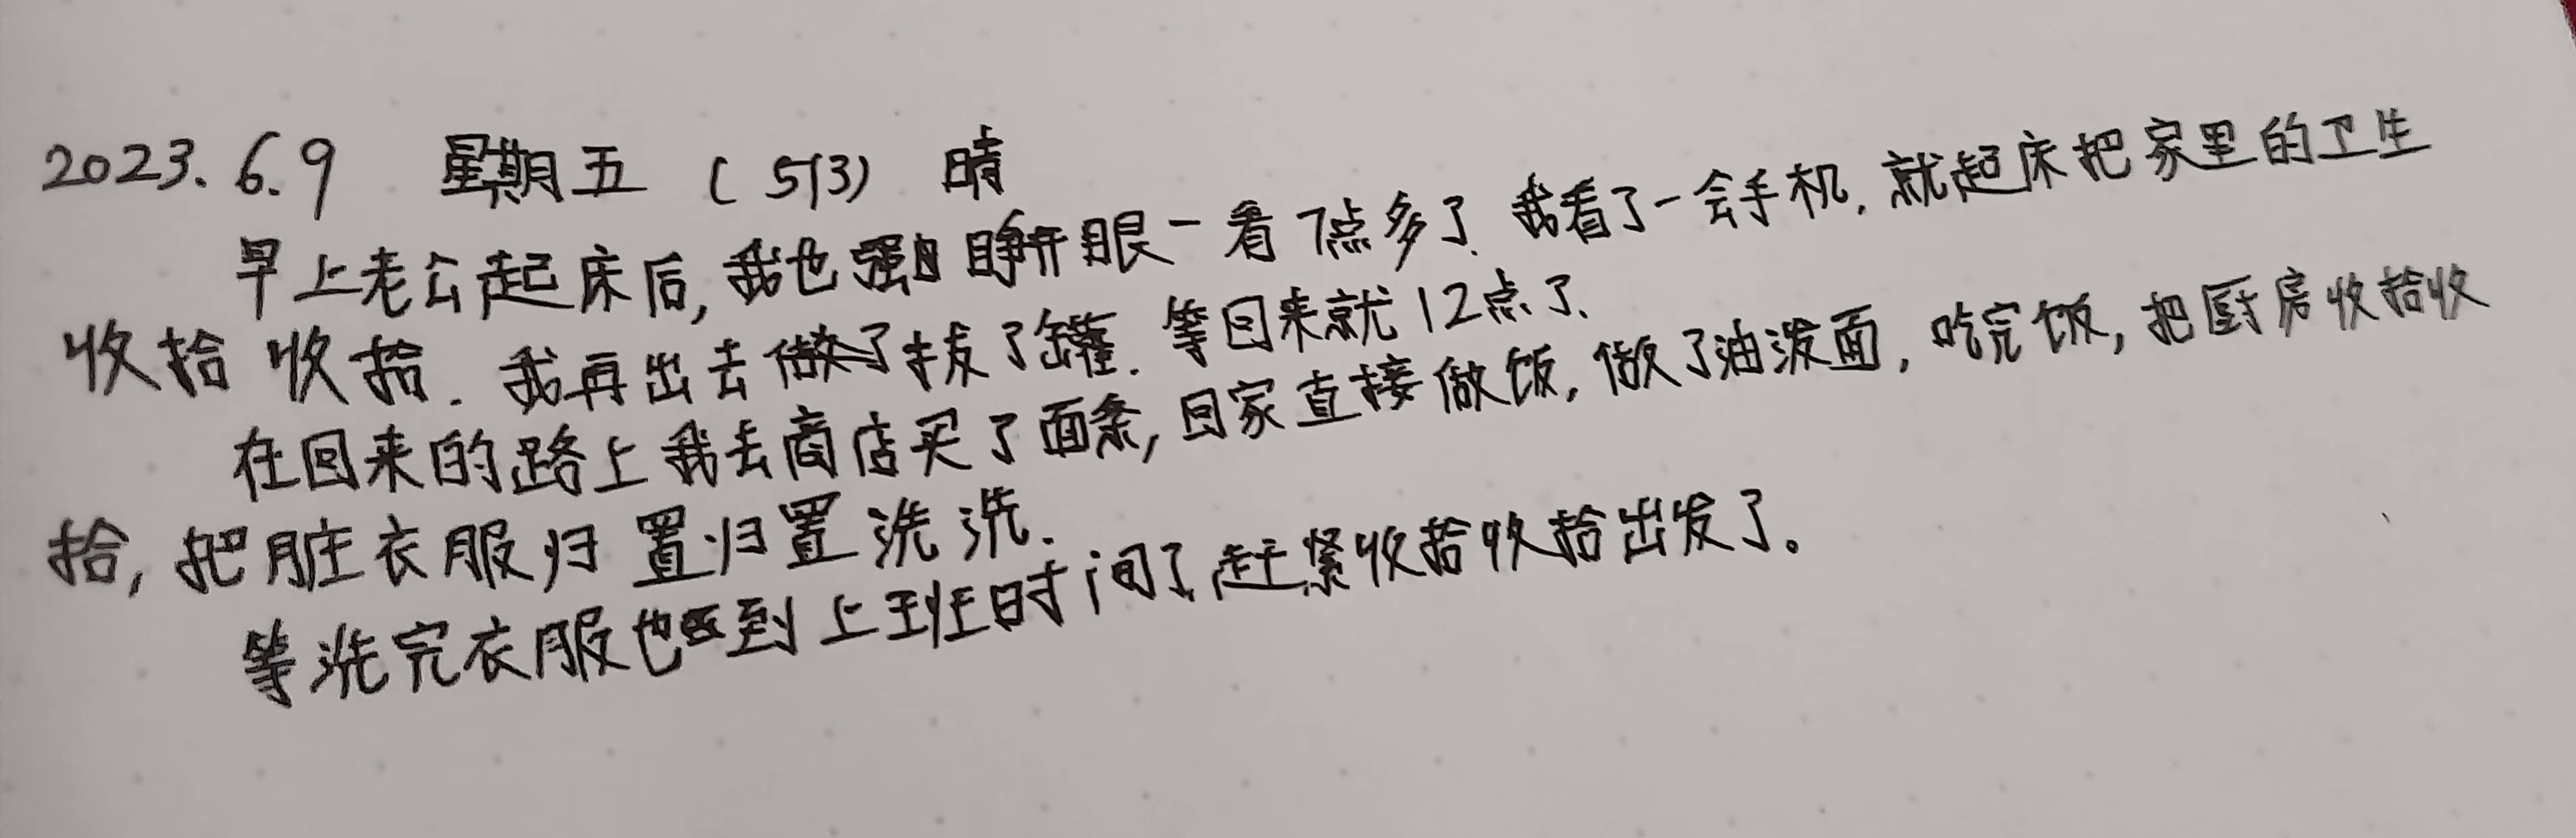 2023.6.9 星期五 (513) 晴
早上老公起床后,我也睁开眼一看7点多了.我看了一会手机.就起床把家里的卫生
收拾收拾.我再出去做了拔了罐.等回来就12点了.
在回来的路上我去商店买了面条,回家直接做饭,做了油泼面,吃完饭,把厨房收拾收
拾,把脏衣服归置归置洗洗.
等洗完衣服也到上班时间了,赶紧收拾收拾出发了。